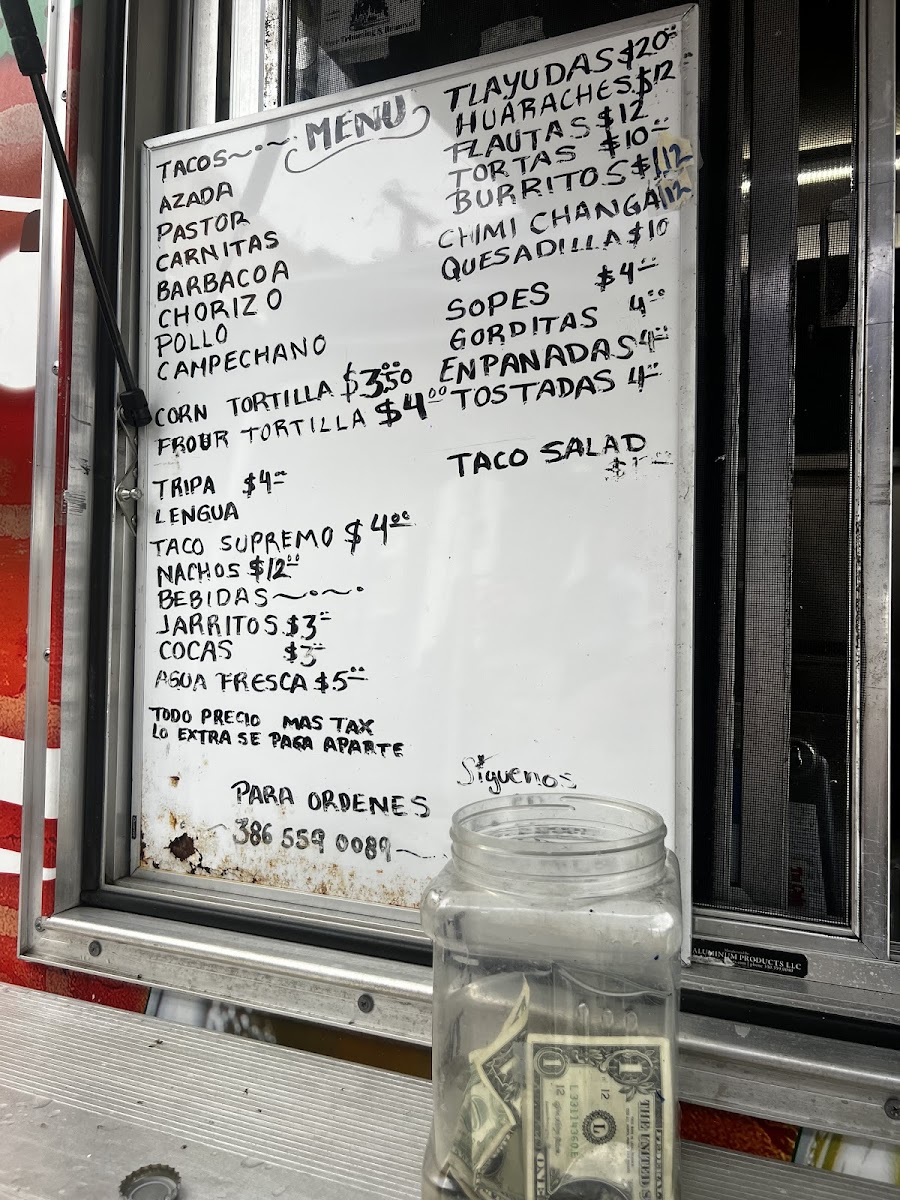 MENU
TACOS
AZADA
PASTOR
CARNITAS
BARBACOA
CHORIZO
POLLO
CAMPECHANO
CORN TORTILLA $3.50
FROUR TORTILLA $4.00
TRIPA $4
LENGUA
TACO SUPREMO $4.00
NACHOS $12.00
BEBIDAS
JARRITOS $3
COCAS $3
AGUA FRESCA $5
TODO PRECIO MAS TAX
LO EXTRA SE PAGA APARTE
PARA ORDENES
386 559 0089
TLAYUDAS $20
HUARACHES $12
FLAUTAS $12
TORTAS $10
BURRITOS $12
CHIMI CHANGA 12
QUESADILLA $10
SOPES $4
GORDITAS 4.00
ENPANADAS 4
TOSTADAS 4
TACO SALAD
Síguenos
ALUMINUM PRODUCTS LLC
1
12
L
THE UNITED
ONE